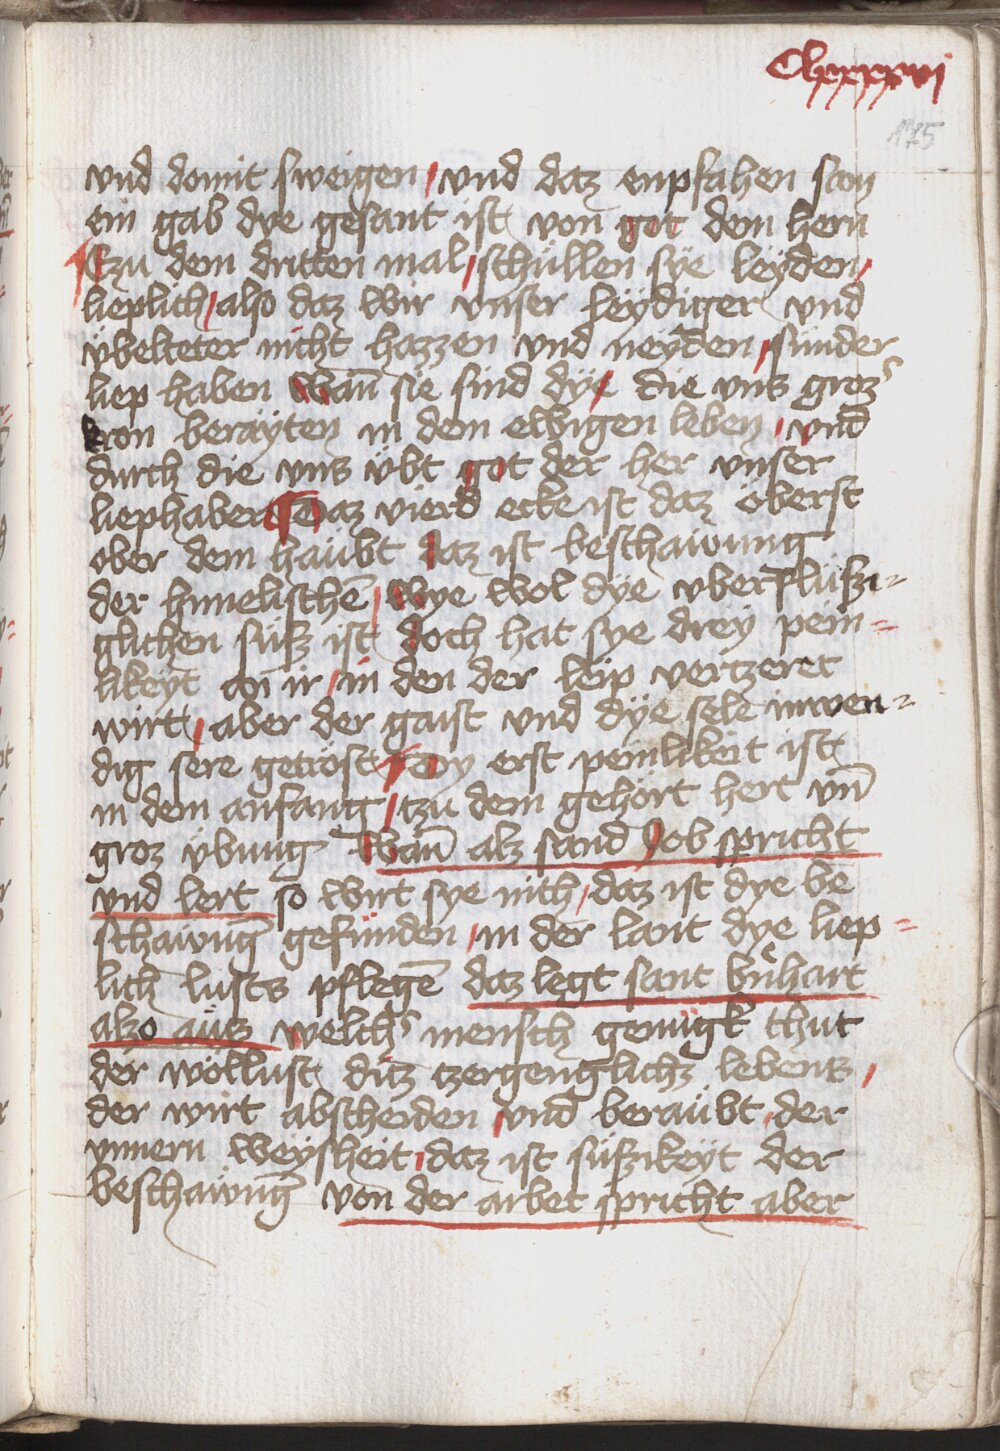 Clxxxxvi
175
vnd domit sweigen / vnd daz enpfahen sam
ein gab dye gesant ist von got dem hern
¶ Tzu dem dritten mal / schüllen sye leyden /
lieplich / also daz wir vnser leydiger vnd
übelteter nicht hazzen vnd neyden / sunder
liep haben Wan̄ sie sind dye die vns groz
kron berayten in dem ewigen leben / vnd
durch die vns übt got der her vnser
liephaber ¶ Daz vierd ecke ist daz öberst
ober dem haubt daz ist beschawung
der himelischē / Wye wol dye vberflüssi=
glichen süsz ist doch hat sye drey pein=
likeyt an ir / in den der leip vertzeret
wirt / aber der gaist vnd dye sele inwen=
dig sere getröst ¶ Dy erst peinlikeit ist
in dem anfang / tzu dem gehört hert vn̄
groz übung Wan̄ alz sand Job spricht
vnd lert so wirt sye nith / daz ist dye be
schawung gefunden / in der lant dye liep=
lich lusts pflegē daz legt sant b̄nhart
alzo ausz welchs mensch genügk thut
der wollust ditz tzergenglichz lebens /
der wirt abscheiden / vnd beraubt / der
ynnern weysheit / daz ist süszikeyt der
beschawung von der arbet spricht aber